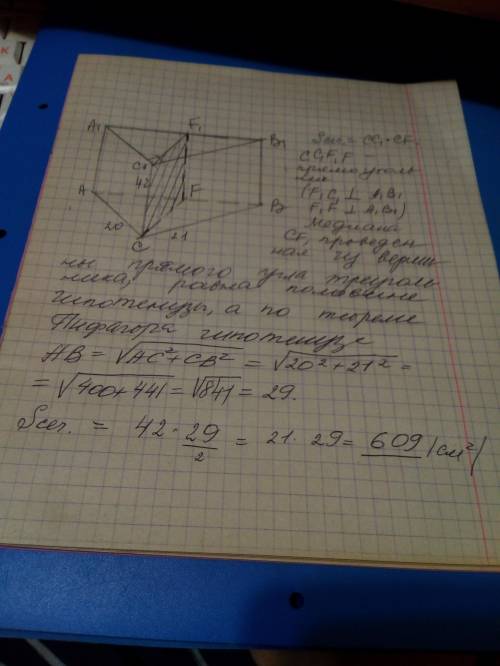 A₁
F₁
B₁
C₁
42
A
F
B
20
21
C
Sсеч = CC₁ · CF
CC₁F₁F –
прямоуголь
ник
(F₁C₁ ⊥ A₁B₁
F₁F ⊥ A₁B₁)
Медиана
CF, проведен
ная из верши
ны прямого угла треуголь
ника, равна половине
гипотенузы, а по теореме
Пифагора гипотенуза
AB = √AC² + CB² = √20² + 21² =
= √400 + 441 = √841 = 29.
Sсеч. = 42 · 29/2 = 21 · 29 = 609 (см²)